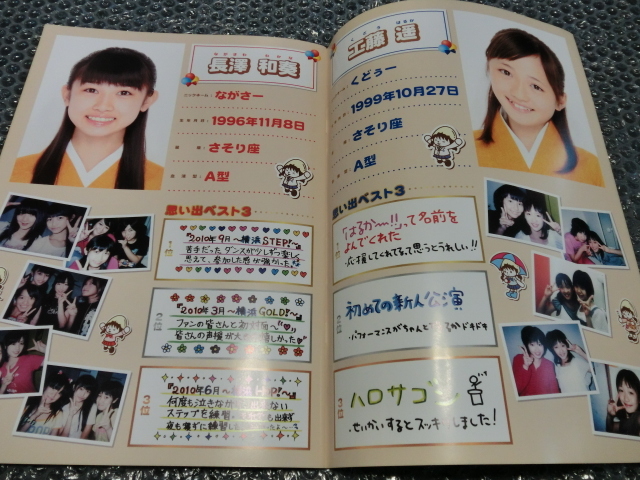 長澤 和奏
ながさー
1996年11月8日
さそり座
A型
思い出ベスト3
1位
『2010年9月～横浜STEP!～』
苦手だったダンスが少しずつ楽しく
2位
『2010年3月～横浜GOLD!～』
ファンの皆さんと初対面
皆さんの声援が
3位
『2010年6月～
何度も泣きな
ステップを練習
工藤 遥
くどぅー
1999年10月27日
さそり座
A型
思い出ベスト3
「はるかーっ!!」って名前を
よんでくれた
応援してくれてるって思うとうれしい!!
初めての新人公演
パフォーマンスがちゃんと
3位
ハロサコン
せいかいするとスッキリしました!